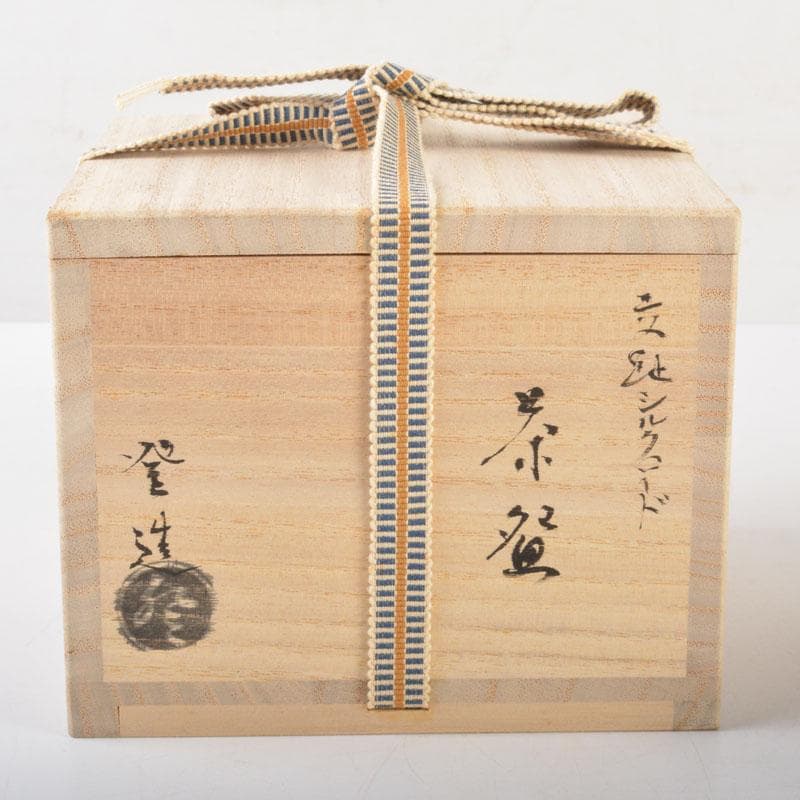 交趾シルクロード
茶盌
登造